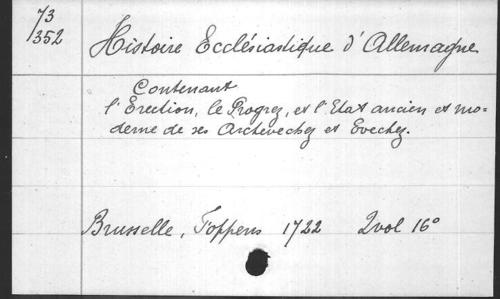 73
352
Histoire Ecclésiastique d'Allemagne
Contenant
l'Erection, le Progrez, et l'Etat ancien et mo-
derne de ses Archevechez et Evechez.
Brusselle, Foppens 1722 2vol 16°